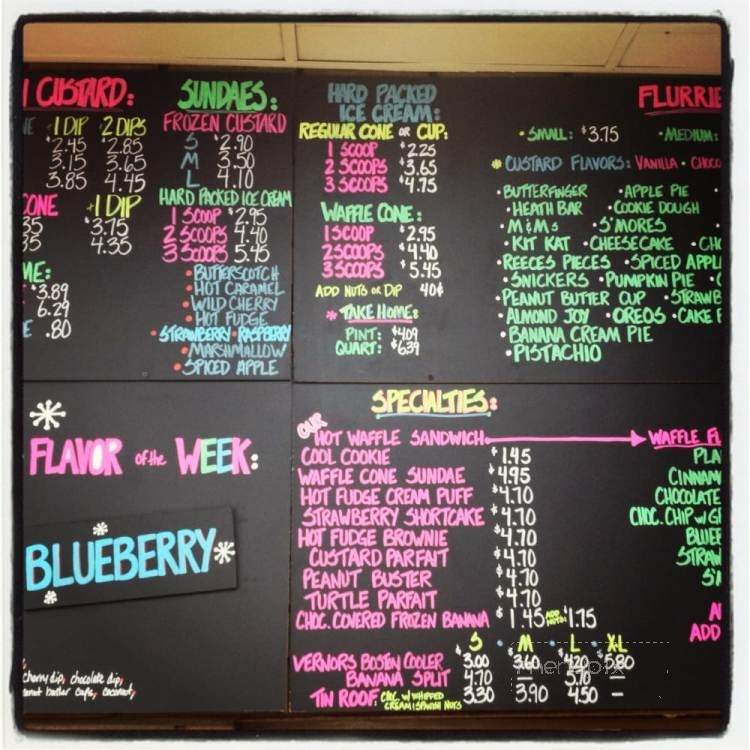 CUSTARD:
1 DIP 2 DIPS
$2.45 $2.85
3.15 3.65
3.85 4.45
CONE 1 DIP
$3.75
4.35
$3.89
6.29
.80
SUNDAES:
FROZEN CUSTARD
S $2.90
M 3.50
L 4.10
HARD PACKED ICE CREAM
1 SCOOP $2.95
2 SCOOPS 4.40
3 SCOOPS 5.45
• BUTTERSCOTCH
• HOT CARAMEL
• WILD CHERRY
• HOT FUDGE
• STRAWBERRY • RASPBERRY
• MARSHMALLOW
• SPICED APPLE
HARD PACKED
ICE CREAM:
REGULAR CONE OR CUP:
1 SCOOP $2.25
2 SCOOPS $3.65
3 SCOOPS $4.75
WAFFLE CONE:
1 SCOOP $2.95
2 SCOOPS $4.40
3 SCOOPS $5.45
ADD NUTS OR DIP 40¢
* TAKE HOME:
PINT: $4.09
QUART: $6.39
FLURRIE
• SMALL: $3.75 • MEDIUM:
* CUSTARD FLAVORS: VANILLA • CHOCO
• BUTTERFINGER • APPLE PIE
• HEATH BAR • COOKIE DOUGH
• M&MS • S'MORES
• KIT KAT • CHEESECAKE • CHO
• REECES PIECES • SPICED APPL
• SNICKERS • PUMPKIN PIE
• PEANUT BUTTER CUP • STRAWB
• ALMOND JOY • OREOS • CAKE
• BANANA CREAM PIE
• PISTACHIO
FLAVOR of the WEEK:
BLUEBERRY
cherry dip, chocolate dip,
butter cups, coconut,
SPECIALTIES:
OUR
HOT WAFFLE SANDWICH WAFFLE FL
COOL COOKIE $1.45 PLA
WAFFLE CONE SUNDAE $4.95 CINNAM
HOT FUDGE CREAM PUFF $4.70 CHOCOLATE
STRAWBERRY SHORTCAKE $4.70 CHOC. CHIP W/ G
HOT FUDGE BROWNIE $4.70 BLUEB
CUSTARD PARFAIT $4.70 STRAW
PEANUT BUSTER $4.70 S'
TURTLE PARFAIT $4.70
CHOC. COVERED FROZEN BANANA $1.45 ADD NUTS: $1.75 ADD
S M L XL
VERNORS BOSTON COOLER 3.00 3.60 4.20 5.80
BANANA SPLIT 4.70 — 5.70 —
TIN ROOF: CHC. W/ WHIPPED CREAM & SPANISH NUTS 3.30 3.90 4.50 —